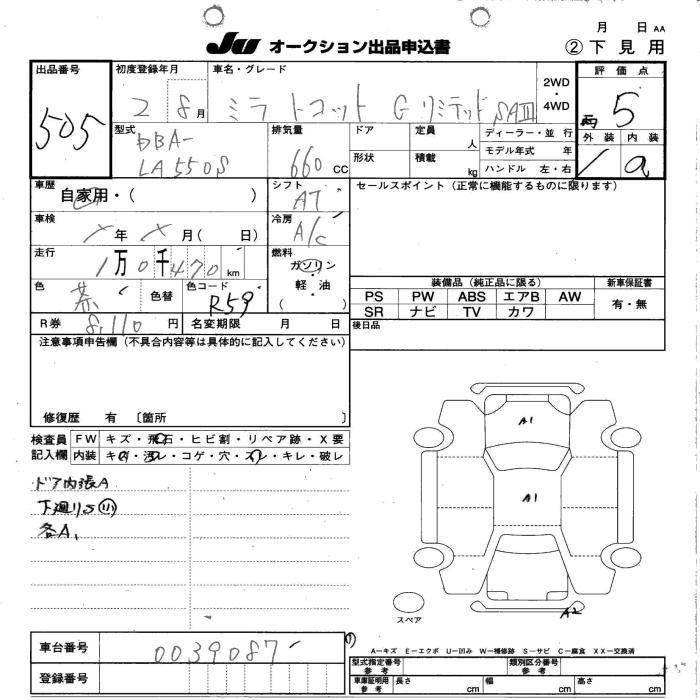 月 日 AA
JU オークション出品申込書 ②下見用
出品番号 505
初度登録年月 2 8月
車名・グレード ミラ トコット G リミテッド SAⅢ
2WD・4WD
評価点 5
外装 内装 a
型式 DBA-LA550S
排気量 660 CC
ドア 定員 人
形状 積載 kg
ディーラー・並行
モデル年式 年
ハンドル 左・右
車歴 自家用・( )
シフト AT
セールスポイント(正常に機能するものに限ります)
車検 年 月( 日)
冷房 A/C
走行 1万0千470km
燃料 ガソリン・軽油( )
色 茶 色替 色コード R59
装備品(純正品に限る) 新車保証書
PS PW ABS エアB AW 有・無
SR ナビ TV カワ
R券 8,110円 名変期限 月 日
後日品
注意事項申告欄(不具合内容等は具体的に記入してください)
修復歴 有 〔箇所 〕
検査員記入欄
FW キズ・飛石・ヒビ割・リペア跡・X要
内装 キズ・汚レ・コゲ・穴・スレ・キレ・破レ
ドア内張A
下廻りS㊙
各A1
A1
A1
A2
スペア
車台番号 0039087
登録番号
A―キズ E―エクボ U―凹み W―補修跡 S―サビ C―腐食 XX―交換済
型式指定番号 参考 類別区分番号 参考
車庫証明用 参考 長さ cm 幅 cm 高さ cm